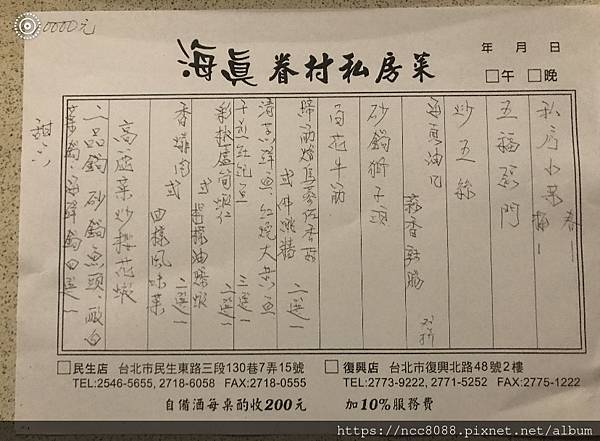 10000元
海真 眷村私房菜
年 月 日
□午 □晚
私房小菜
五福臨門
炒五絲
蒜香軟腸
砂鍋獅子頭
百花牛筋
蹄筋燴烏參佐香菇
二選一
清蒸鮮魚、紅燒大黃魚
三選一
彩椒蘆筍蝦仁
二選一
香爆肉 式
二選一
四樣風味菜
高麗菜炒櫻花蝦
一品鍋、砂鍋魚頭、酸白
菜鍋、
四選一
甜
□民生店 台北市民生東路三段130巷7弄15號
TEL:2546-5655, 2718-6058 FAX:2718-0555
□復興店 台北市復興北路48號2樓
TEL:2773-9222, 2771-5252 FAX:2775-1222
自備酒每桌酌收200元 加10%服務費
https://ncc8088.pixnet.net/album